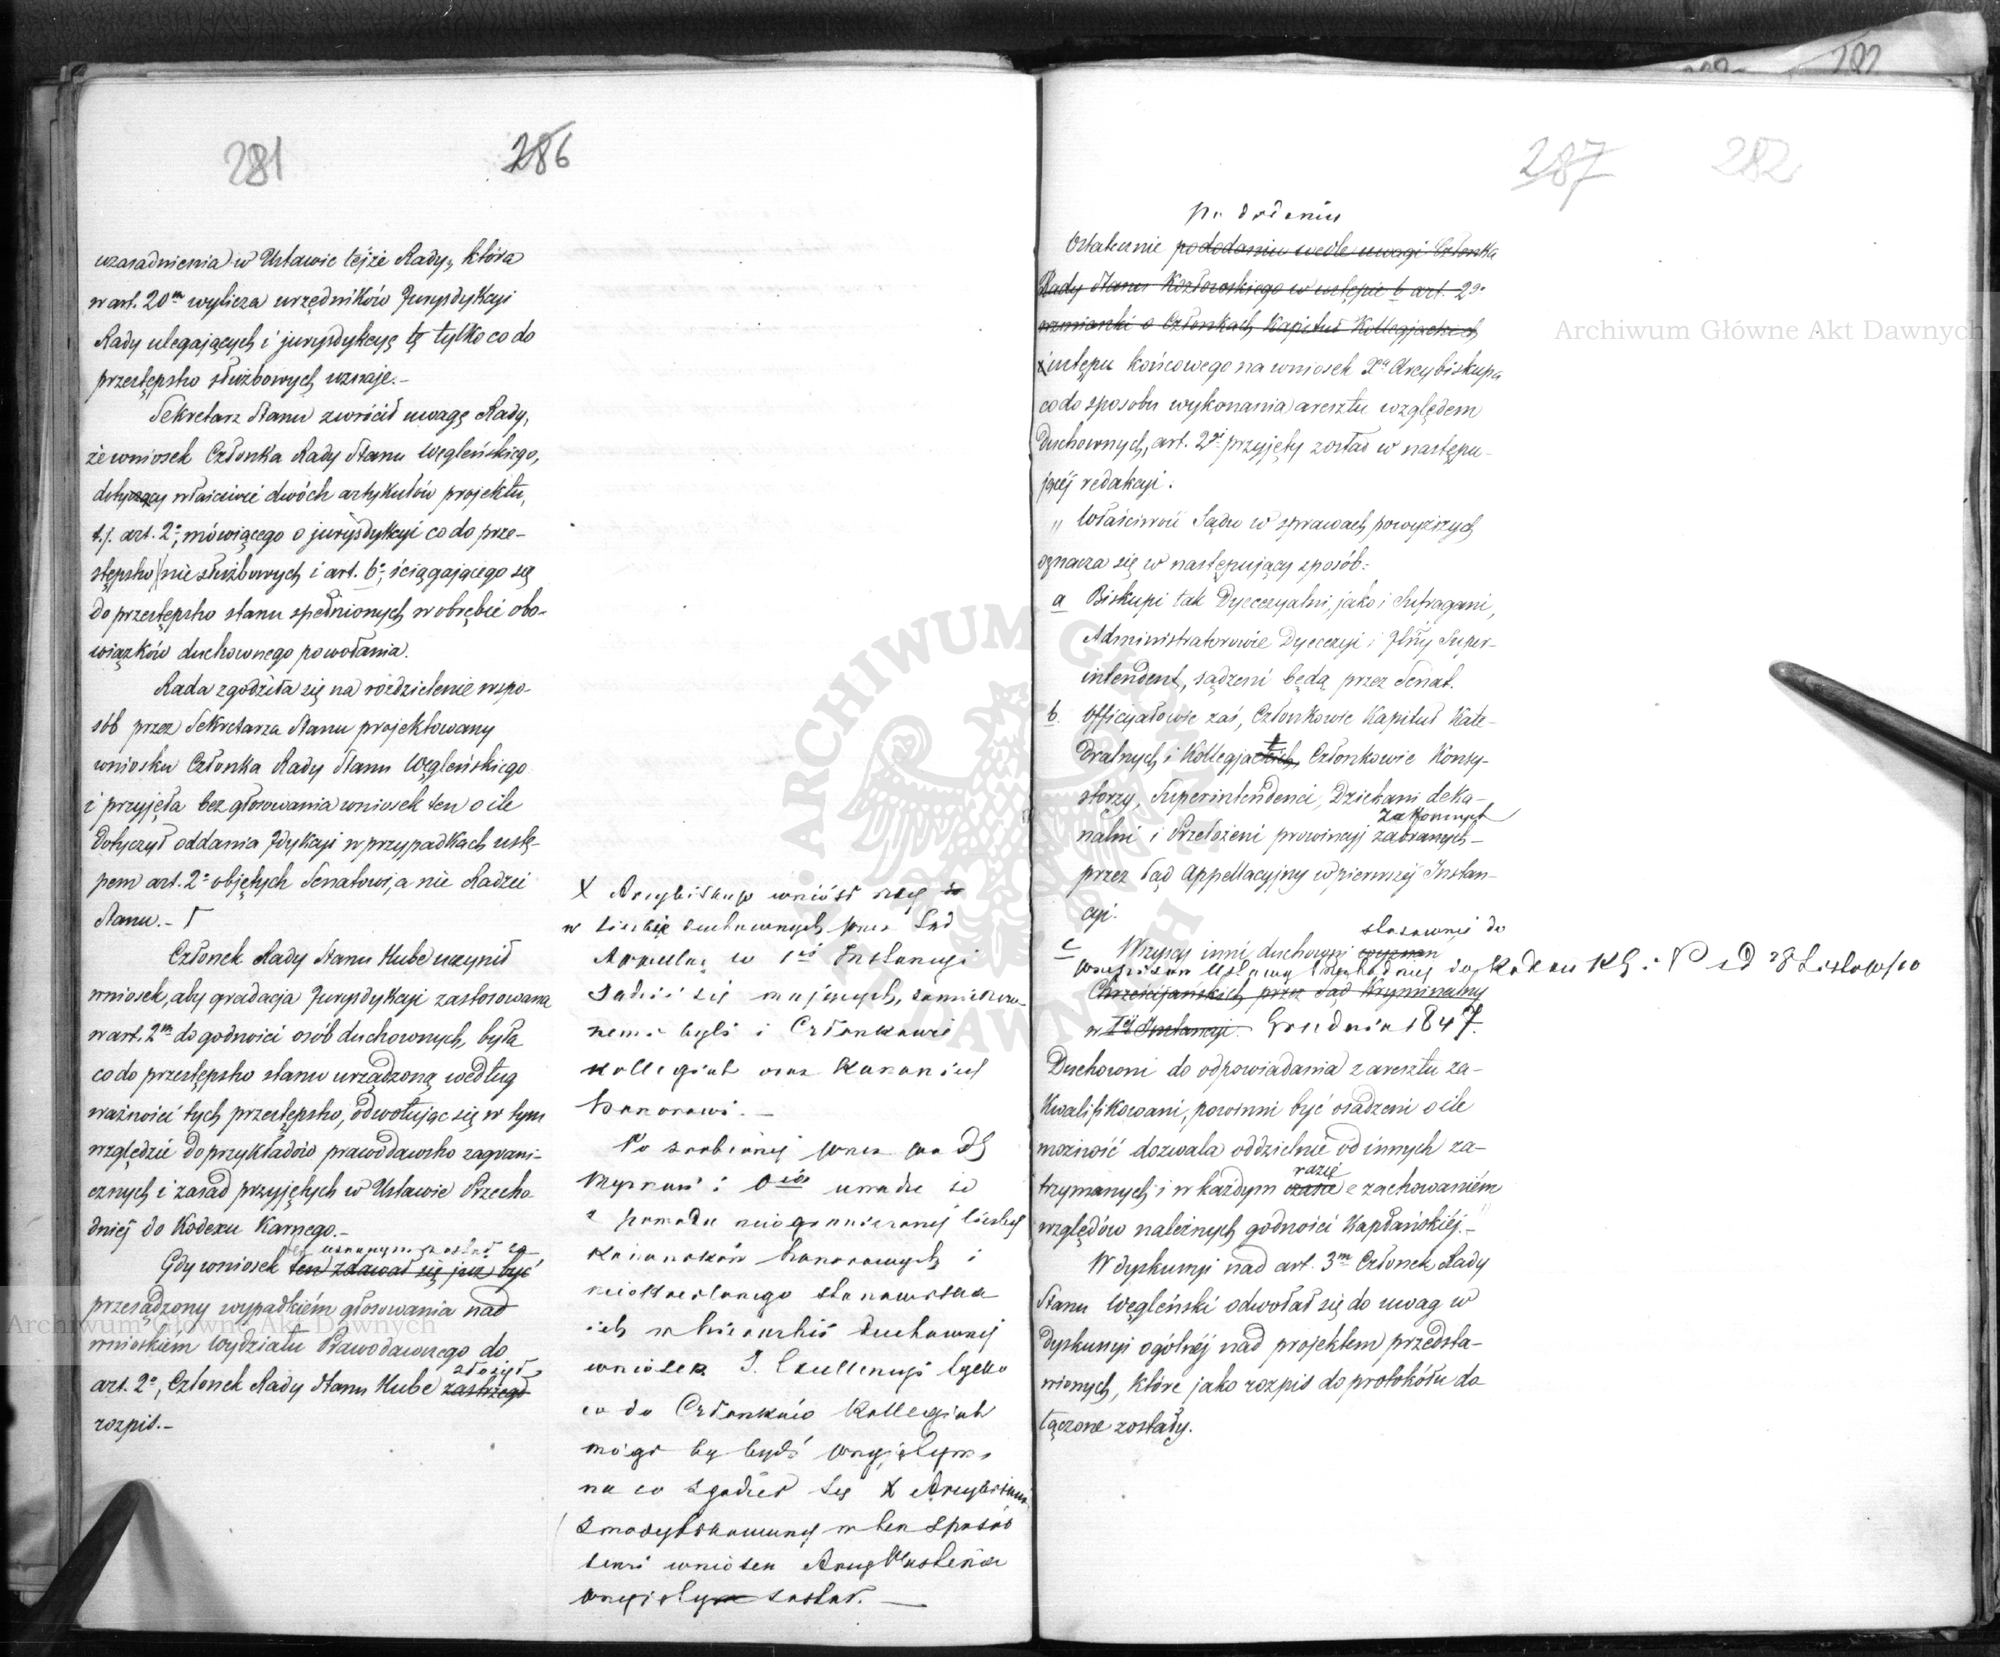 281
286
uzasadnienia w Ustawie tejże Rady, która
w art. 20m wylicza urzędników Jurysdykcyi
Rady ulegających i jurysdykcyę tę tylko co do
przestępstw służbowych uznaje.-
Sekretarz Stanu zwrócił uwagę Rady,
że wniosek Członka Rady Stanu Węgleńskiego,
dotyczący właściwie dwóch artykułów projektu,
t.j. art. 2o, mówiącego o jurysdykcyi co do prze-
stępstw nie służbowych i art. 6o, ściągającego się
do przestępstw stanu spełnionych w obrębie obo-
wiązków duchownego powołania.
Rada zgodziła się na rozdzielenie wspo-
sób przez Sekretarza Stanu projektowany
wniosku Członka Rady Stanu Węgleńskiego
i przyjęła bez głosowania wniosek ten o ile
dotyczył oddania Jdykcyi w przypadkach ustę-
pem art. 2o objętych Senatowi, a nie Radzie
Stanu.- Γ
Członek Rady Stanu Hube uczynił
wniosek, aby gradacja Jurysdykcyi zastosowana
w art. 2m do godności osób duchownych, była
co do przestępstw stanu urządzoną według
ważności tych przestępstw, odwołując się w tym
względzie do przykładów prawodawstw zagrani-
cznych i zasad przyjętych w Ustawie Przecho
dniej do Kodexu Karnego.-
uznanym został za
Gdy wniosek ten zdawał się już być
przesądzony wypadkiem głosowania nad
wnioskiem Wydziału Prawodawczego do
złożył
art. 2o, Członek Rady Stanu Hube zastrzegł
rozpis.-
X Arcybiskup wniósł aby
w liczbie duchownych przez Sąd
Appellac w 1ej Instancyi
Sądzić się mających, zamieszcze-
nemi byli i Członkowie
Kollegiat oraz Kanonicy
honorowi. -
Po zrobionej przez
uwadze że
z powodu nieograniczonej liczby
Kanoników honorowych i
nieokreślonego stanowiska
ich w hierarchii duchownej
wniosek J. Excellencyi tylko
co do Członków Kollegiat
mógł by bydź przyjętym,
na co zgodził się X Arcybiskup
Zmodyfikowany w ten sposób
wniosek Arcybiskupa
przyjętym został. -
282
287
282
po dodaniu
Ostatecznie po dodaniu wedle uwagi Członka
Rady Stanu Kozłowskiego w ustępie b art. 2go
wzmianki o Członkach Kapituł Kollegjackich
X ustępu końcowego na wniosek Xa Arcybiskupa
co do sposobu wykonania aresztu względem
Duchownych, art. 2gi przyjęty został w następu-
jącej redakcyi.
„ Właściwość Sądu w sprawach powyższych
oznacza się w następujący sposób:
a Biskupi tak Dyecezyalni, jako i Sufragani,
Administratorowie Dyecezyi i Jlny Super-
intendent, sądzeni będą przez Senat.
b. Officyałowie zaś, Członkowie Kapituł Kate-
dralnych i Kollegjackich, Członkowie Konsy-
storzy, Superintendenci, Dziekani deka-
Zakonnych
nalni i Przełożeni prowincyj zabranych -
przez Sąd Appellacyjny w pierwszej Instan-
cyi.
stosownie do
c Wszyscy inni duchowni wyznań
przepisów Ustawy Przechodniej do Kodexu KG i P z d 28 Listopada
Chrześcijańskich przez Sąd Kryminalny
w Iej Instancyi. Grudnia 1847.
Duchowni do odpowiadania z aresztu za-
kwalifikowani, powinni być osadzeni o ile
możność dozwala oddzielnie od innych za-
razie
trzymanych i w każdym czasie z zachowaniem
względów należnych godności Kapłańskiej.-"
W dyskusyi nad art. 3m Członek Rady
Stanu Węgleński odwołał się do uwag w
dyskusyi ogólnej nad projektem przedsta-
wionych, które jako rozpis do protokółu do
łączone zostały.
Archiwum Główne Akt Dawnych
Archiwum Główne Akt Dawnych
ARCHIWUM GŁÓWNE AKT DAWNYCH